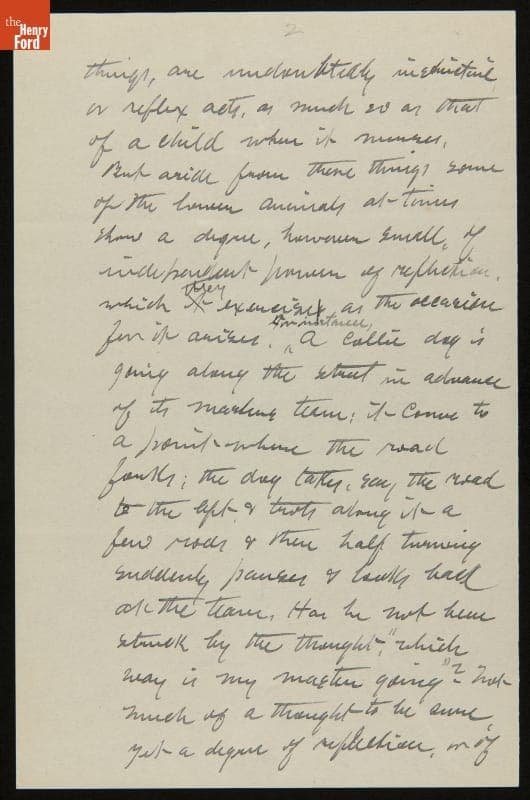 the
Henry
Ford
2
things, are undoubtedly instinctive
or reflex acts, as much so as that
of a child when it nurses.
But aside from these things some
of the lower animals at times
show a degree, however small, of
independent power of reflection,
which they exercise as the occasion
for it arises. for instance, A Collie dog is
going along the street in advance
of its masters team; it comes to
a point where the road
forks; the dog takes, say, the road
to the left & trots along it a
few rods & then half turning
suddenly pauses & looks back
at the team. Has he not been
struck by the thought, "which
way is my master going"? Not
much of a thought to be sure,
yet a degree of reflection, or of